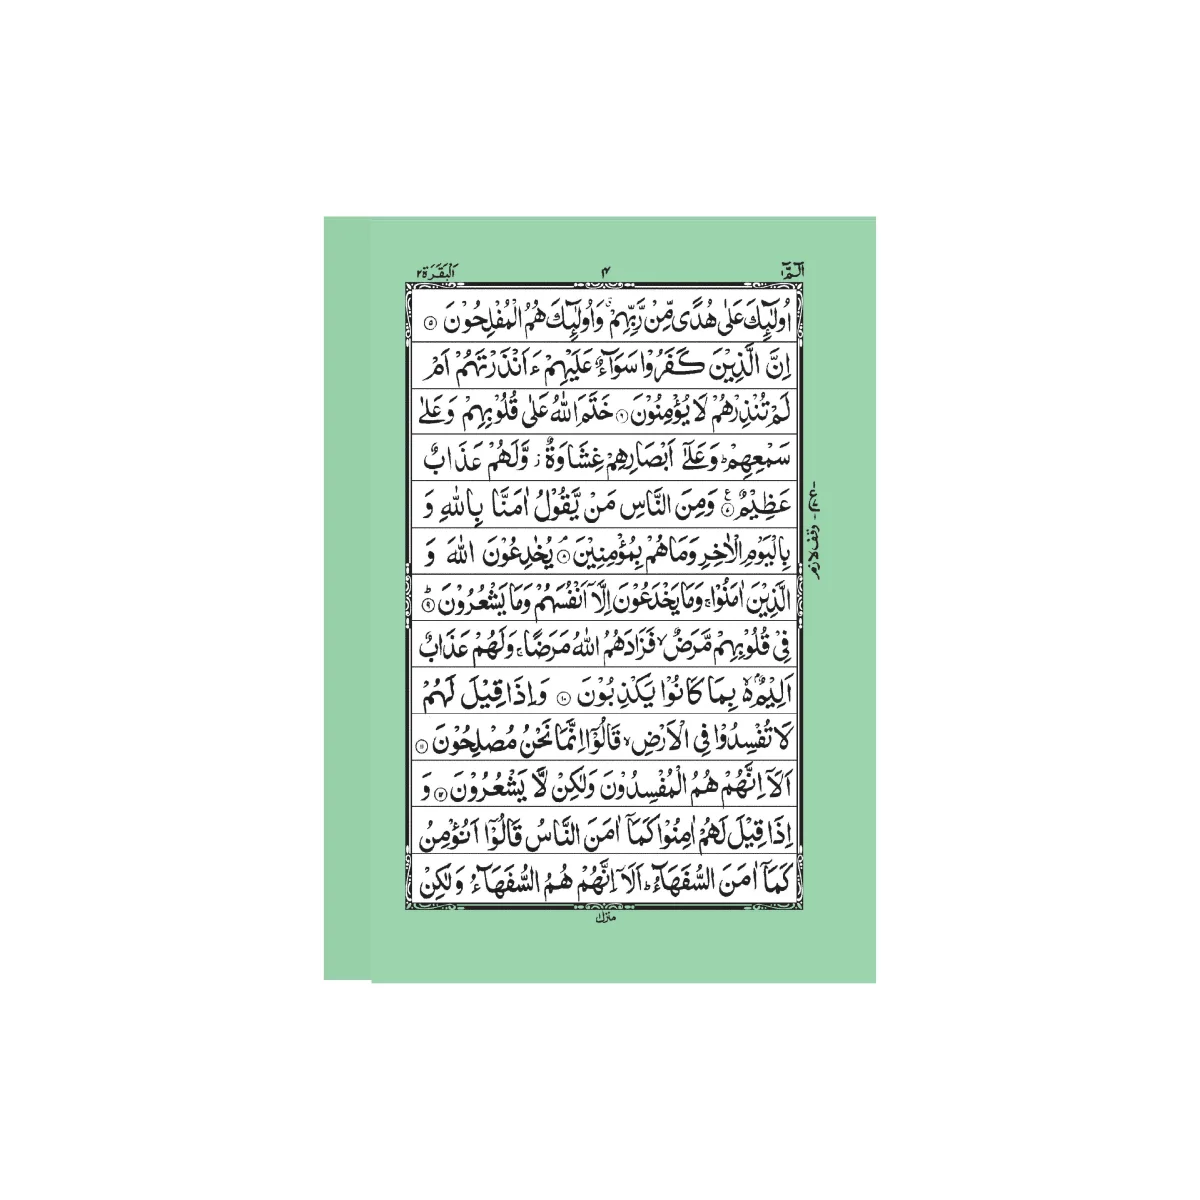 الٓمّٓ ١
٤
اَلْبَقَرَة ٢
اُولٰٓئِكَ عَلٰى هُدًى مِّنْ رَّبِّهِمْ ۙ وَاُولٰٓئِكَ هُمُ الْمُفْلِحُوْنَ ۝٥
اِنَّ الَّذِيْنَ كَفَرُوْا سَوَآءٌ عَلَيْهِمْ ءَاَنْذَرْتَهُمْ اَمْ
لَمْ تُنْذِرْهُمْ لَا يُؤْمِنُوْنَ ۝٦ خَتَمَ اللّٰهُ عَلٰى قُلُوْبِهِمْ وَعَلٰى
سَمْعِهِمْ ؕ وَعَلٰٓى اَبْصَارِهِمْ غِشَاوَةٌ ز وَّلَهُمْ عَذَابٌ
عَظِيْمٌ ۝٧ ع وَمِنَ النَّاسِ مَنْ يَّقُوْلُ اٰمَنَّا بِاللّٰهِ وَ
بِالْيَوْمِ الْاٰخِرِ وَمَا هُمْ بِمُؤْمِنِيْنَ ۘ ۝٨ يُخٰدِعُوْنَ اللّٰهَ وَ
الَّذِيْنَ اٰمَنُوْا ۚ وَمَا يَخْدَعُوْنَ اِلَّآ اَنْفُسَهُمْ وَمَا يَشْعُرُوْنَ ؕ ۝٩
فِيْ قُلُوْبِهِمْ مَّرَضٌ ۙ فَزَادَهُمُ اللّٰهُ مَرَضًا ۚ وَلَهُمْ عَذَابٌ
اَلِيْمٌۢ ۙ۬ بِمَا كَانُوْا يَكْذِبُوْنَ ۝١٠ وَاِذَا قِيْلَ لَهُمْ
لَا تُفْسِدُوْا فِي الْاَرْضِ ۙ قَالُوْٓا اِنَّمَا نَحْنُ مُصْلِحُوْنَ ۝١١
اَلَآ اِنَّهُمْ هُمُ الْمُفْسِدُوْنَ وَلٰكِنْ لَّا يَشْعُرُوْنَ ۝١٢ وَ
اِذَا قِيْلَ لَهُمْ اٰمِنُوْا كَمَآ اٰمَنَ النَّاسُ قَالُوْٓا اَنُؤْمِنُ
كَمَآ اٰمَنَ السُّفَهَآءُ ؕ اَلَآ اِنَّهُمْ هُمُ السُّفَهَآءُ وَلٰكِنْ
وقف لازم